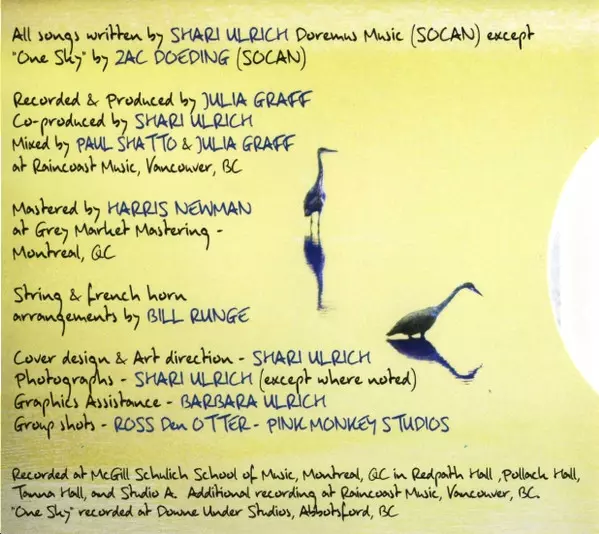 All songs written by SHARI ULRICH Doremus Music (SOCAN) except
"One Sky" by ZAC DOEDING (SOCAN)
Recorded & Produced by JULIA GRAFF
Co-produced by SHARI ULRICH
Mixed by PAUL SHATTO & JULIA GRAFF
at Raincoast Music, Vancouver, BC
Mastered by HARRIS NEWMAN
at Grey Market Mastering -
Montreal, QC
String & french horn
arrangements by BILL RUNGE
Cover design & Art direction - SHARI ULRICH
Photographs - SHARI ULRICH (except where noted)
Graphics Assistance - BARBARA ULRICH
Group shots - ROSS Den OTTER - PINK MONKEY STUDIOS
Recorded at McGill Schulich School of Music, Montreal, QC in Redpath Hall , Pollack Hall,
Tanna Hall, and Studio A. Additional recording at Raincoast Music, Vancouver, BC.
"One Sky" recorded at Downe Under Studios, Abbotsford, BC